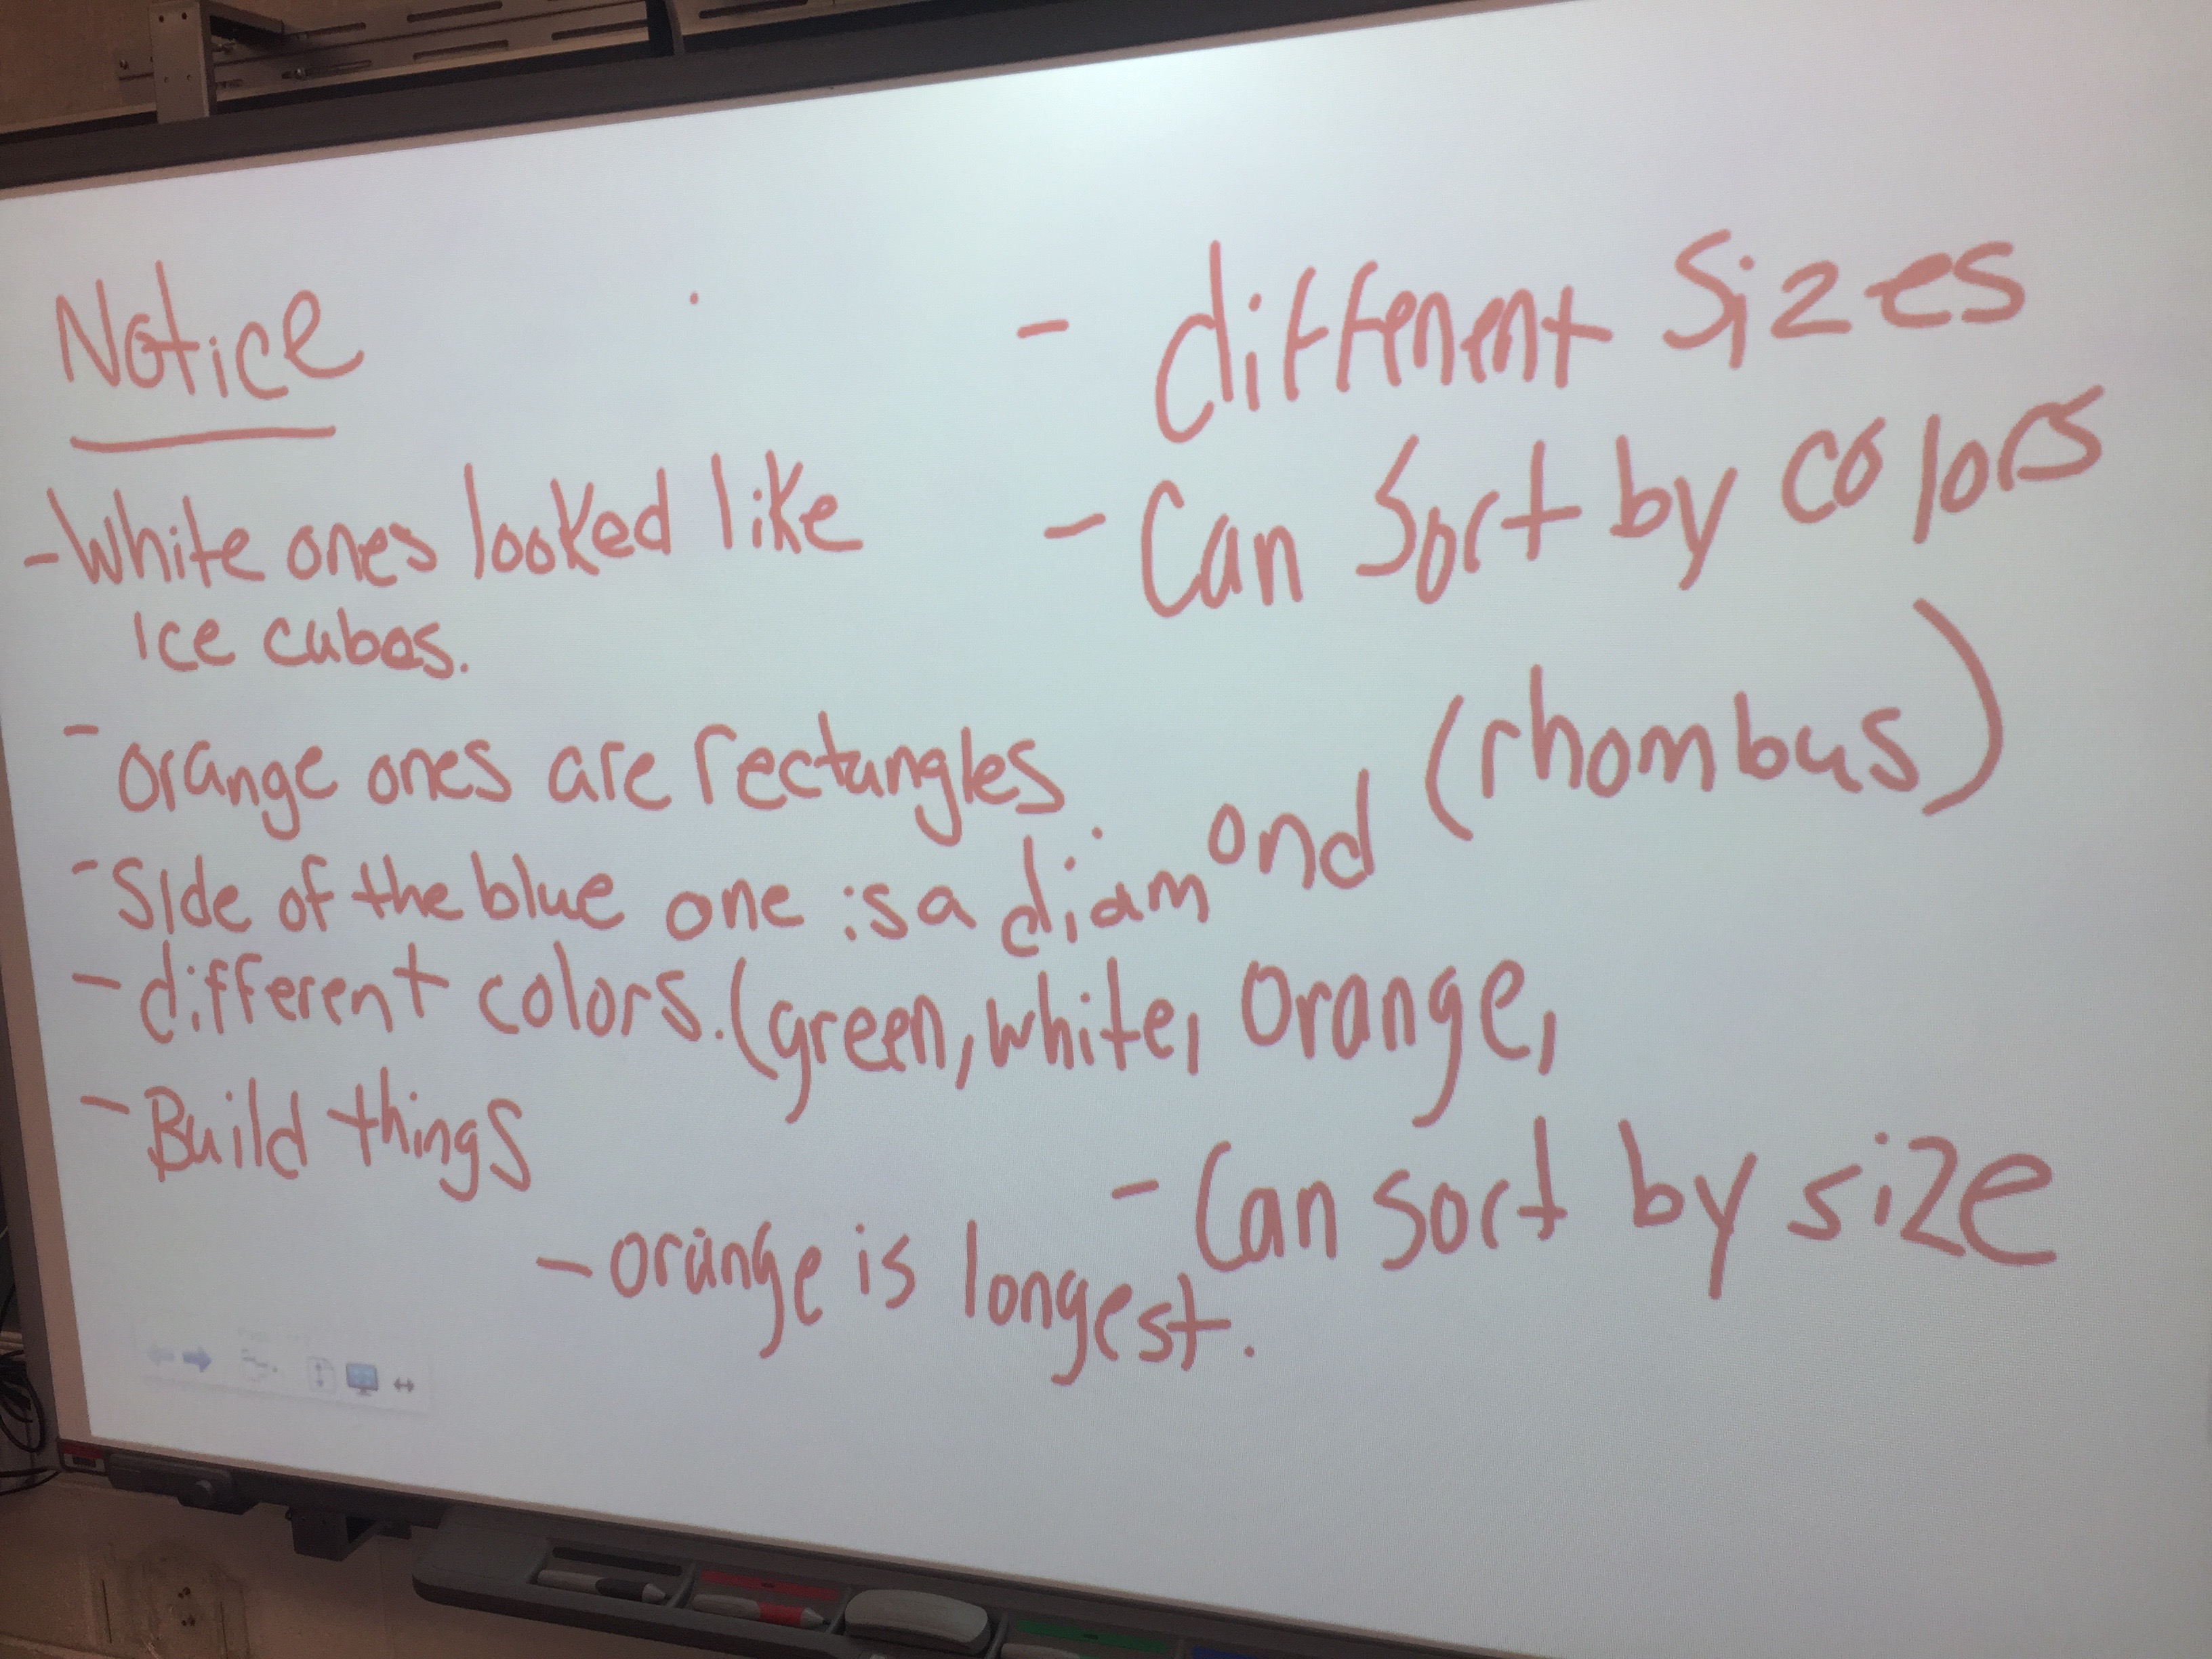 Notice
- White ones looked like
Ice cubes.
- orange ones are rectangles
- Side of the blue one is a diamond (rhombus)
- different colors. (green, white, orange,
- Build things
- orange is longest.
- different sizes
- Can sort by colors
- Can sort by size